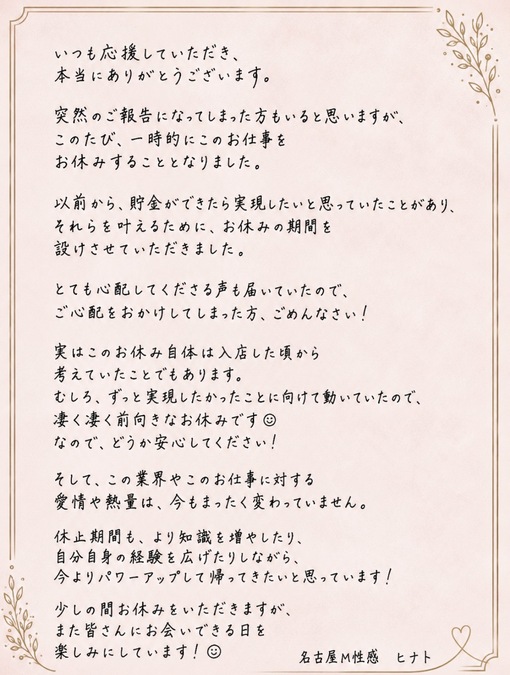 いつも応援していただき、
本当にありがとうございます。
突然のご報告になってしまった方もいると思いますが、
このたび、一時的にこのお仕事を
お休みすることとなりました。
以前から、貯金ができたら実現したいと思っていたことがあり、
それらを叶えるために、お休みの期間を
設けさせていただきました。
とても心配してくださる声も届いていたので、
ご心配をおかけしてしまった方、ごめんなさい！
実はこのお休み自体は入店した頃から
考えていたことでもあります。
むしろ、ずっと実現したかったことに向けて動いていたので、
凄く凄く前向きなお休みです☺
なので、どうか安心してください！
そして、この業界やこのお仕事に対する
愛情や熱量は、今もまったく変わっていません。
休止期間も、より知識を増やしたり、
自分自身の経験を広げたりしながら、
今よりパワーアップして帰ってきたいと思っています！
少しの間お休みをいただきますが、
また皆さんにお会いできる日を
楽しみにしています！☺
名古屋M性感　ヒナト